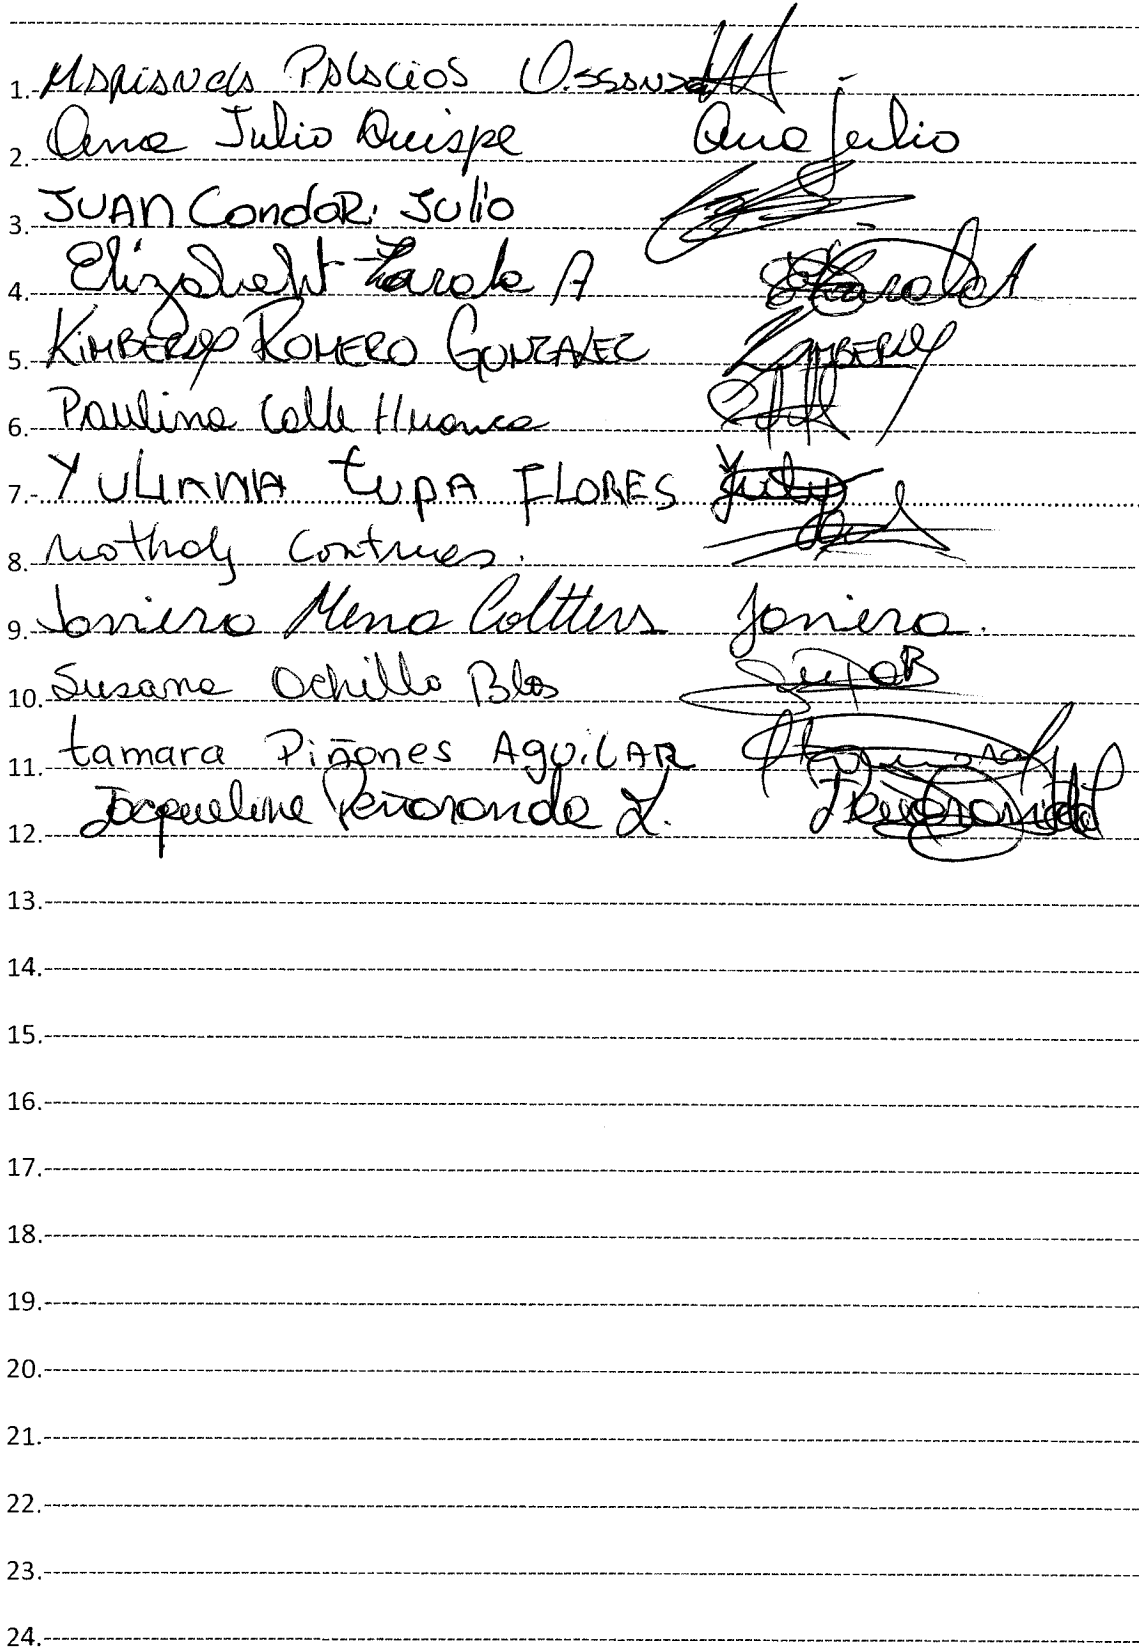 1. Marianela Palacios Ossandon
2. Ana Julio Quispe Ana Julio
3. JUAN CondoRi Julio
4. Elizabeht Zarate A
5. KIMBERLY ROMERO GONZALEZ KIMBERLY
6. Paulina Calle Huanca
7. YULIANA tupA FLORES Yuly
8. Nathaly Contreras.
9. Javiera Mena Coltters Javiera.
10. Susana Ochillo Blas
11. tamara Piñones AguiLAR
12. Jacqueline Peñaranda L.
13.
14.
15.
16.
17.
18.
19.
20.
21.
22.
23.
24.